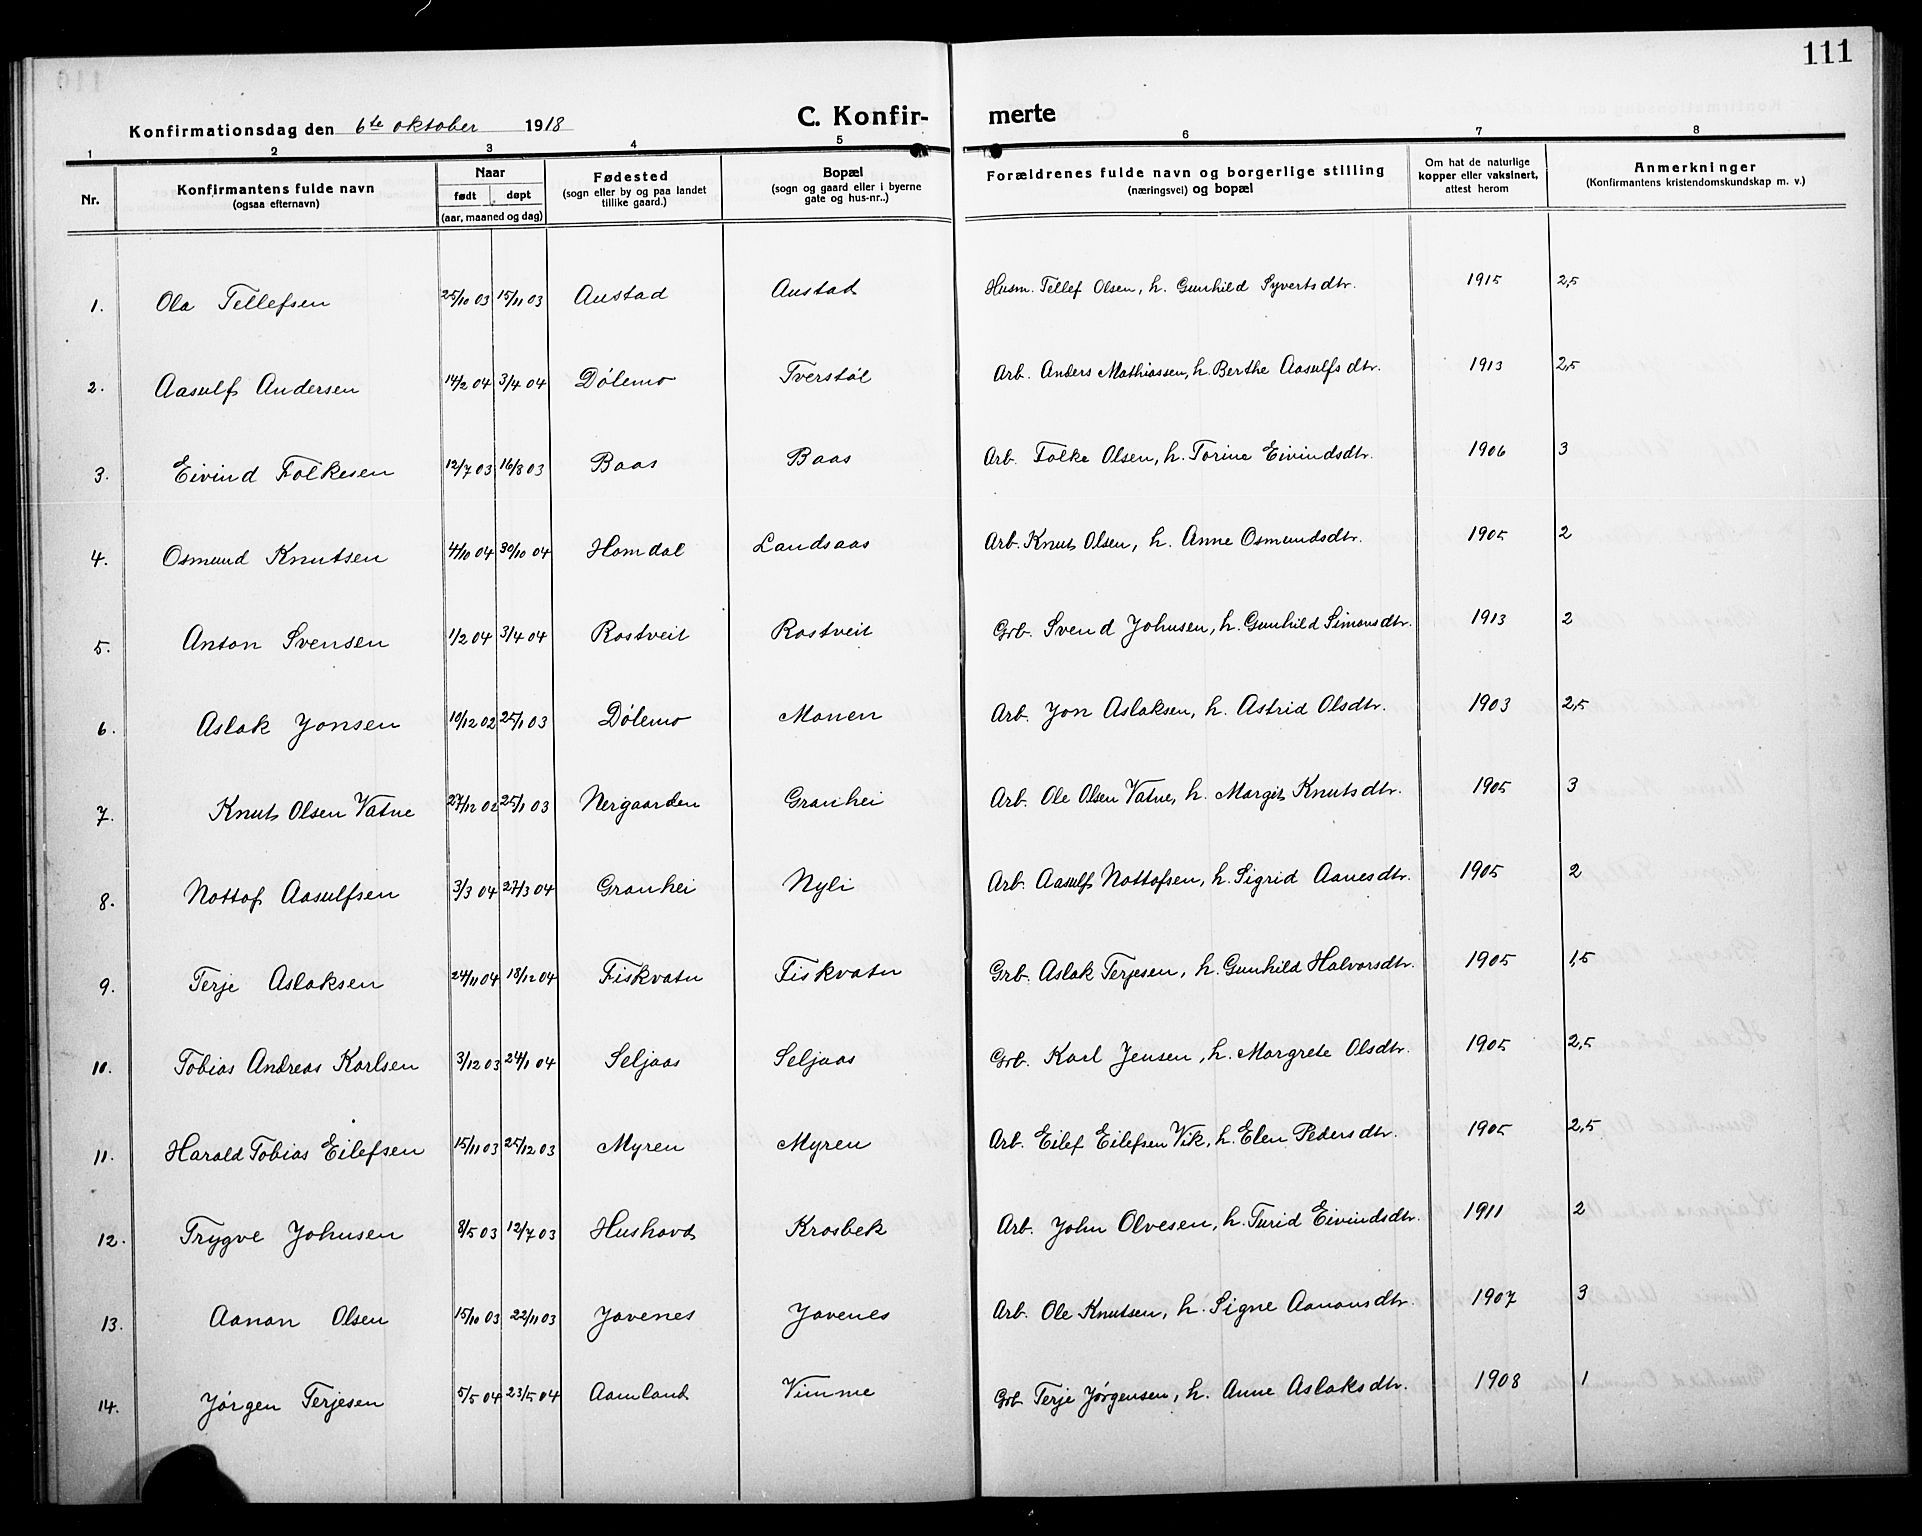 111
Konfirmationsdag den 6te oktober 1918
C. Konfir- merte
1 2 3 4 5 6 7 8
Nr.
Konfirmantens fulde navn
(ogsaa efternavn)
Naar
født døpt
(aar, maaned og dag)
Fødested
(sogn eller by og paa landet
tillike gaard.)
Bopæl
(sogn og gaard eller i byerne
gate og hus-nr..)
Forældrenes fulde navn og borgerlige stilling
(næringsvei) og bopæl
Om hat de naturlige
kopper eller vaksinert,
attest herom
Anmerkninger
(Konfirmantens kristendomskundskap m. v.)
1. Ola Tellefsen 25/10 03 15/11 03 Austad Austad Husm. Tellef Olsen, h. Gunhild Syvertsdtr. 1915 2,5
2. Aasulf Andersen 14/2 04 3/4 04 Dølemo Tverstøl Arb. Anders Mathiassen, h. Berthe Aasulfsdtr. 1913 2,5
3. Eivind Folkesen 12/7 03 16/8 03 Baas Baas Arb. Folke Olsen, h. Torine Eivindsdtr. 1906 3
4. Osmund Knutsen 4/10 04 30/10 04 Homdal Landsaas Arb. Knut Olsen, h. Anne Osmundsdtr. 1905 2
5. Anton Svensen 1/2 04 3/4 04 Rostveit Rostveit Grb. Svend Johnsen, h. Gunhild Simonsdtr. 1913 2
6. Aslak Jonsen 10/12 02 25/1 03 Dølemo Monen Arb. Jon Aslaksen, h. Astrid Olsdtr. 1903 2,5
7. Knut Olsen Vatne 27/12 02 25/1 03 Nergaarden Granhei Arb. Ole Olsen Vatne, h. Margit Knutsdtr. 1905 3
8. Nottof Aasulfsen 3/3 04 27/3 04 Granhei Nyli Arb. Aasulf Nottofsen, h. Sigrid Aanesdtr. 1905 2
9. Terje Aslaksen 24/11 04 18/12 04 Fiskvatn Fiskvatn Grb. Aslak Terjesen, h. Gunhild Halvorsdtr. 1905 1,5
10. Tobias Andreas Karlsen 3/12 03 24/1 04 Seljaas Seljaas Grb. Karl Jensen, h. Margrete Olsdtr. 1905 2,5
11. Harald Tobias Eilefsen 15/11 03 25/12 03 Myren Myren Arb. Eilef Eilefsen Vik, h. Elen Pedersdtr. 1905 2,5
12. Trygve Johnsen 8/5 03 12/7 03 Hushovd Krosbek Arb. John Olvesen, h. Turid Eivindsdtr. 1911 2
13. Aanon Olsen 15/10 03 22/11 03 Jovenes Jovenes Arb. Ole Knutsen, h. Signe Aanonsdtr. 1907 3
14. Jørgen Terjesen 5/5 04 23/5 04 Aamland Vimme Grb Terje Jørgensen, h. Anne Aslaksdtr. 1908 1